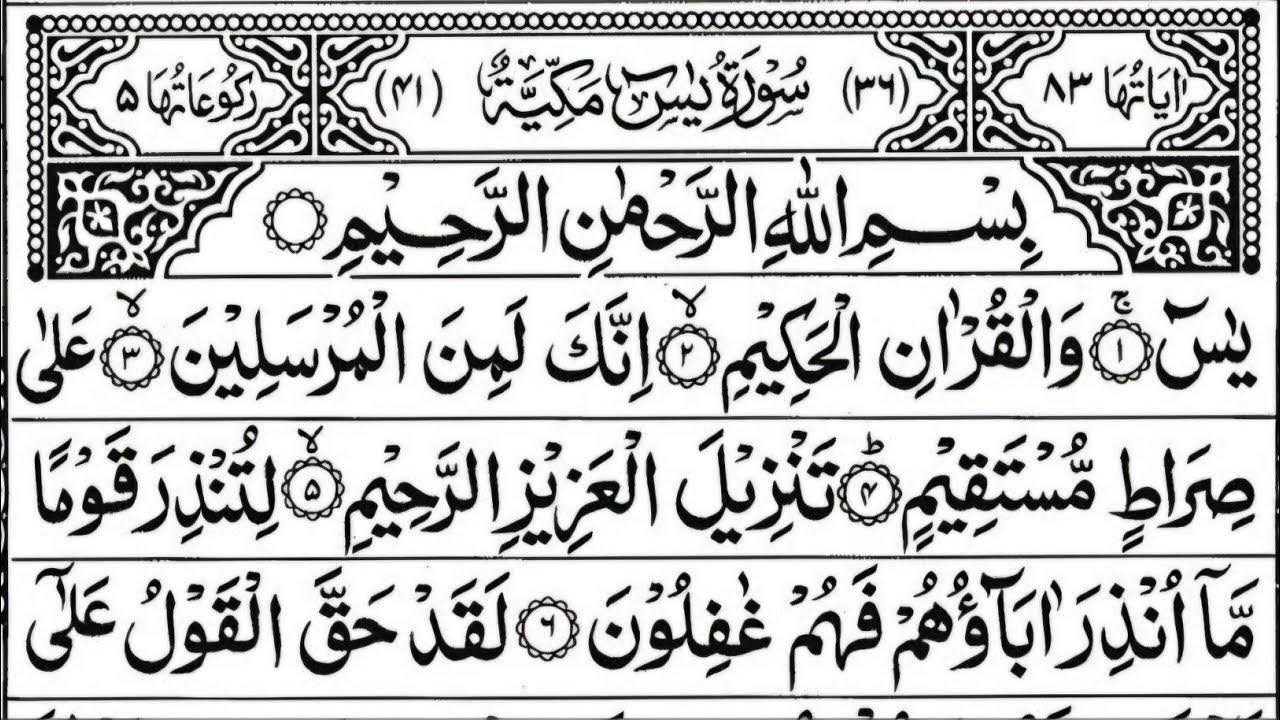 اٰيَاتُهَا ٨٣ (٣٦) سُوْرَةُ يٰسٓ مَكِّيَّةٌ (٤١) رُكُوْعَاتُهَا ٥
بِسْمِ اللّٰهِ الرَّحْمٰنِ الرَّحِيْمِ
يٰسٓ ۚ ﴿١﴾ وَالْقُرْاٰنِ الْحَكِيْمِ ۙ ﴿٢﴾ اِنَّكَ لَمِنَ الْمُرْسَلِيْنَ ۙ ﴿٣﴾ عَلٰى
صِرَاطٍ مُّسْتَقِيْمٍ ؕ ﴿۴﴾ تَنْزِيْلَ الْعَزِيْزِ الرَّحِيْمِ ۙ ﴿٥﴾ لِتُنْذِرَ قَوْمًا
مَّاۤ اُنْذِرَ اٰبَآؤُهُمْ فَهُمْ غٰفِلُوْنَ ﴿٦﴾ لَقَدْ حَقَّ الْقَوْلُ عَلٰٓى